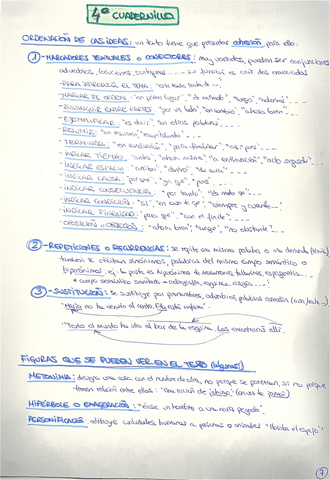 4º CUADERNILLO
ORDENACIÓN DE LAS IDEAS: un texto tiene que presentar cohesión, para ello:
1 - MARCADORES TEXTUALES O CONECTORES: muy variados, pueden ser conjunciones
adverbios, locuciones, sintagmas... su función es unir dos enunciados
- PARA INTRODUCIR EL TEMA: "este texto trata de...
- MARCAR EL ORDEN: "en primer lugar", "el segundo", "luego", "además"...
- DISTINGUIR ENTRE PARTES: "por un lado", "en cambio", "ahora bien"...
- EJEMPLIFICAR: "es decir", "en otras palabras"...
- RESUMIR: "en resumen", "resumiendo"...
- TERMINAR: "en conclusión", "para finalizar", "así pues"
- INDICAR TIEMPO: "antes", "ahora mismo", "a continuación", "acto seguido"...
- INDICAR ESPACIO: "arriba", "dentro",
- INDICAR CAUSA: "porque", "ya que", "pues"...
- INDICAR CONSECUENCIA: "por tanto",
- INDICAR CONDICIÓN: "si", "en caso de que", "siempre y cuando"...
- INDICAR FINALIDAD: "para que", "con el fin de"...
- OPOSICIÓN u OBJECIÓN: "ahora bien", "aunque", "no obstante"...
2 - REPETICIONES O RECURRENCIAS: se repite una misma palabra o una derivada
también se utilizan sinónimos, palabras del mismo campo semántico o
hiperónimos: ej: la pasta es hiperónimo de macarrones, tallarines, espaguetis...
3 - SUSTITUCIÓN: se sustituye por pronombres, adverbios, palabras
"María no ha venido al corte. Ella está enferma"
"Todo el mundo ha ido al bar de la esquina. Los encontrarás allí.
FIGURAS QUE SE PUEDEN VER EN EL TEXTO (algunas!)
METONIMIA: designa una cosa con el nombre de otra, no porque se parezcan, si no porque
tienen relación entre ellas:
HIPÉRBOLE O EXAGERACIÓN: "érase un hombre a una nariz pegado".
PERSONIFICACIÓN: atribuye cualidades humanas a personas o animales "lloraba el espejo"
7